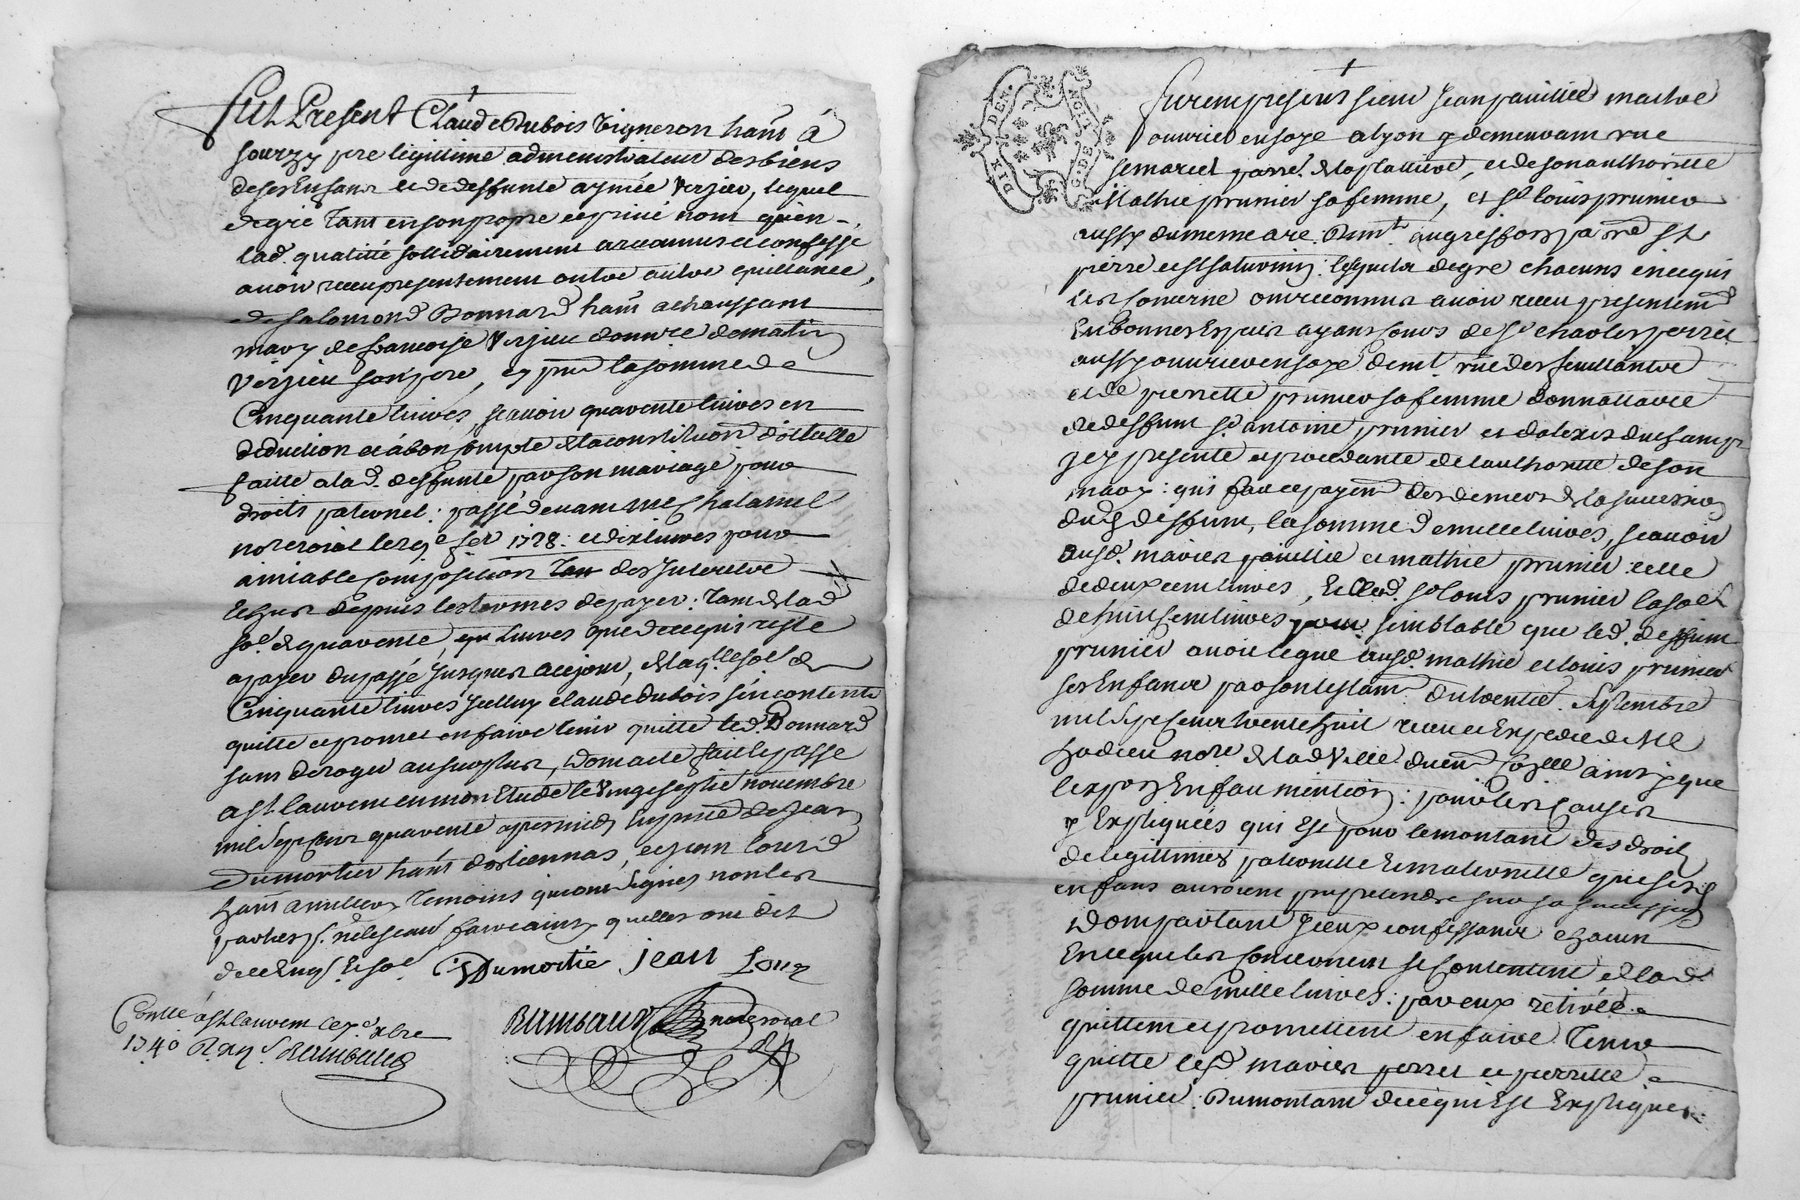 Fut Present Claude Dubois Vigneron hant à
Sourzy pre legittime administrateur des biens
de ses Enfans et de deffunte aymée Verzieu, lequel
de gré tant en son propre et privé nom qu'en
lad. qualitté sollidairement a reconnu et confessé
avoir receu presentement outre autre quittance,
de Salomond Bonnard hant a chaussant
mary de francoise Verzieu donnre de matin
Verzieu son pere, la somme de
Cinquante livres, scavoir quarente livres en
deduction et à bon compte de la constitution d'icelle
faitte a lad. deffunte par son mariage pour
droits paternel: passé devant me Chalamel
no.re roial le fer 1728: et dix livres pour
amiable composition des Interetz
Echus depuis les termes de payer: tant de lad
so.e de quarente livres que de ce qui reste
a payer du passé Jusques a ce jour, de laq.lle so.e de
Cinquante livres Icelluy Claude Dubois s'en contente
quitte et promet en faire tenir quitte led. Bonnard
sans deroger au surplus, Dont acte fait et passé
a St. laurent en mon Etude le vingt sept.e novembre
mil sept cent quarente apres midy En pnce de Jean
Dumortier hant d'ostiennas, et Jean
hant temoins qui ont signés non les
parties p. ne le scavoir faire ainsy qu'elles ont dit
de ce Enq. et so.e Dumortié jean Louy
Raimbaud no.re roial
Conllé à St. laurent le xbre
1740 R. Raimbaud
DIX DEN.
G. DE LION
Furent presents sieur Jean paillié maitre
ouvrier en soye a lyon y demeurant rue
St marcel parr. de la plattiere, et de son authoritté
Mathie prunier sa femme, et sr. louis prunier
aussy du meme art Demt. au griffon parre St
pierre et st saturnin: lesquels de gré chacuns en ce qui
les conserne ont reconnus avoir receu presentemt
En bonnes Especes ayans cours de sr charles perret
aussy ouvrier en soye demt. rue des feuillants
et de pierrette prunier sa femme donnataire
de deffunt sr. antoine prunier et d'alexis duchamp
Icy presente et procedante de l'authoritté de son
mary: qui font ce payemt des deniers de la succession
dud. deffunt, la somme de mille livres, scavoir
ausd. mariés paillié et mathie prunier celle
de deux cent livres, Et aud. sr louis prunier la so.e
de huit cent livres pour semblable que led. deffunt
prunier avoit legué ausd. mathie et louis prunier
ses Enfans par son testamt. du trentie. Septembre
mil sept cent trente huit receu et Expedié de Me
hodieu no.re de lad. ville ainsy que
l'expon En fait mention: pour les causes
y Expliquées qui Est pour le montant des droits
de legittimes paternelle et maternelle que sesd.
enfans auroient pu pretendre sur sa succession
Dont partant Iceux confessants chacun
En ce qui les concernent se contentent de lad.
somme de mille livres: par eux retirée
quittent et promettent en faire tenir
quitte lesd. mariés perret et pierrette
prunier. Du montant de ce qui Est Expliqué